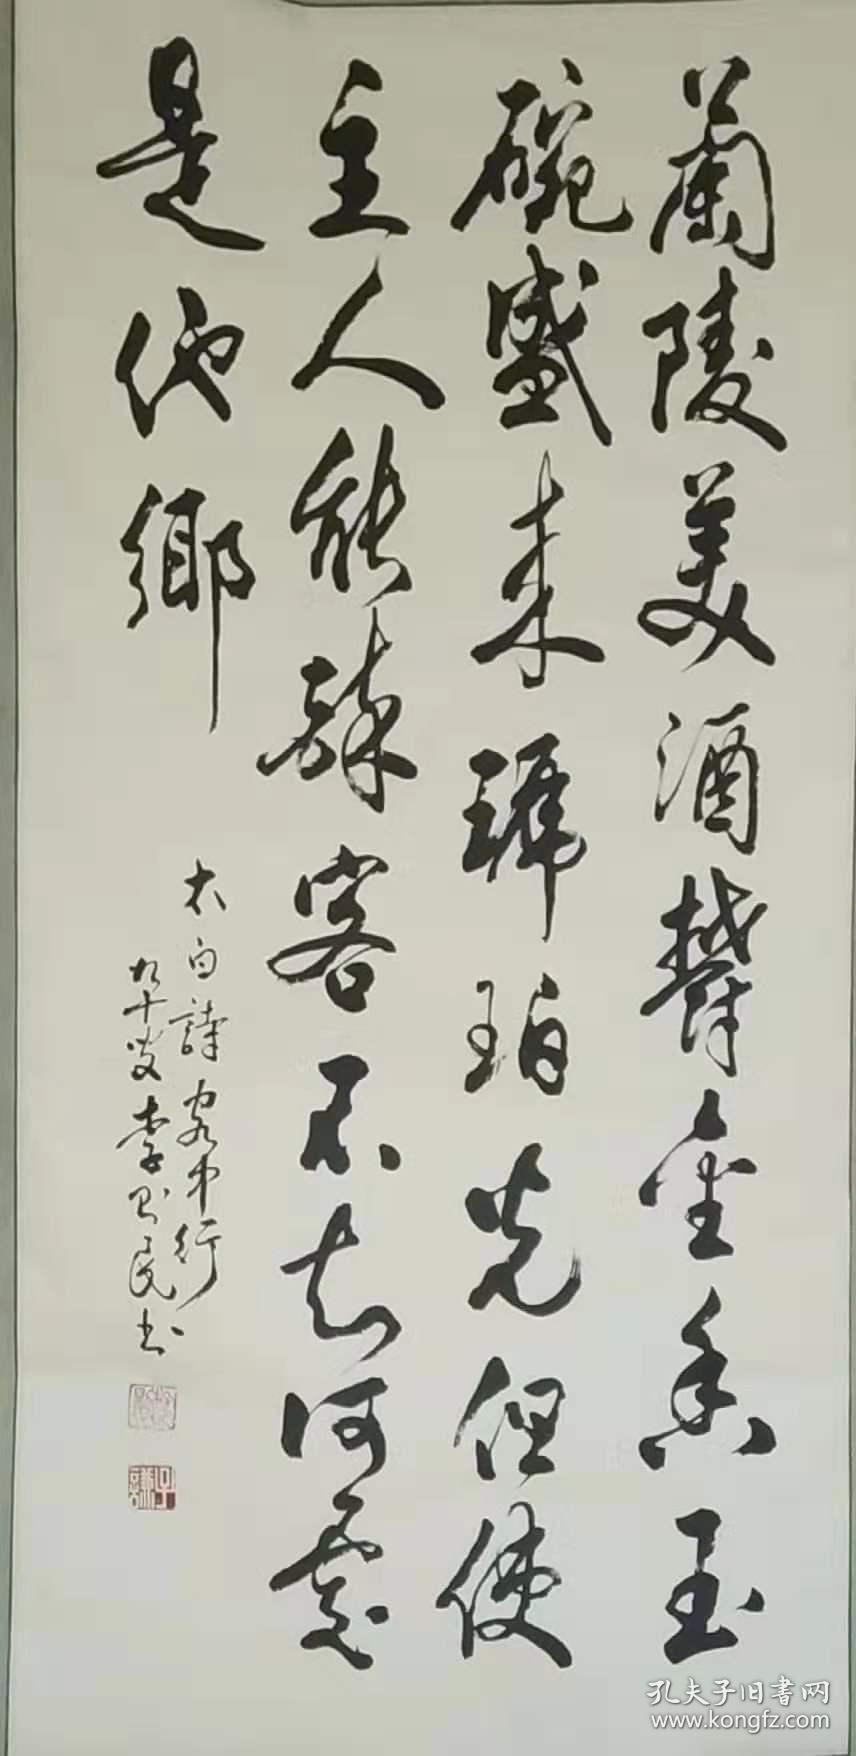 蘭陵美酒鬱金香玉
碗盛来琥珀光但使
主人能醉客不知何處
是他鄉
太白詩客中行
九十叟李民书
孔夫子旧书网
www.kongfz.com